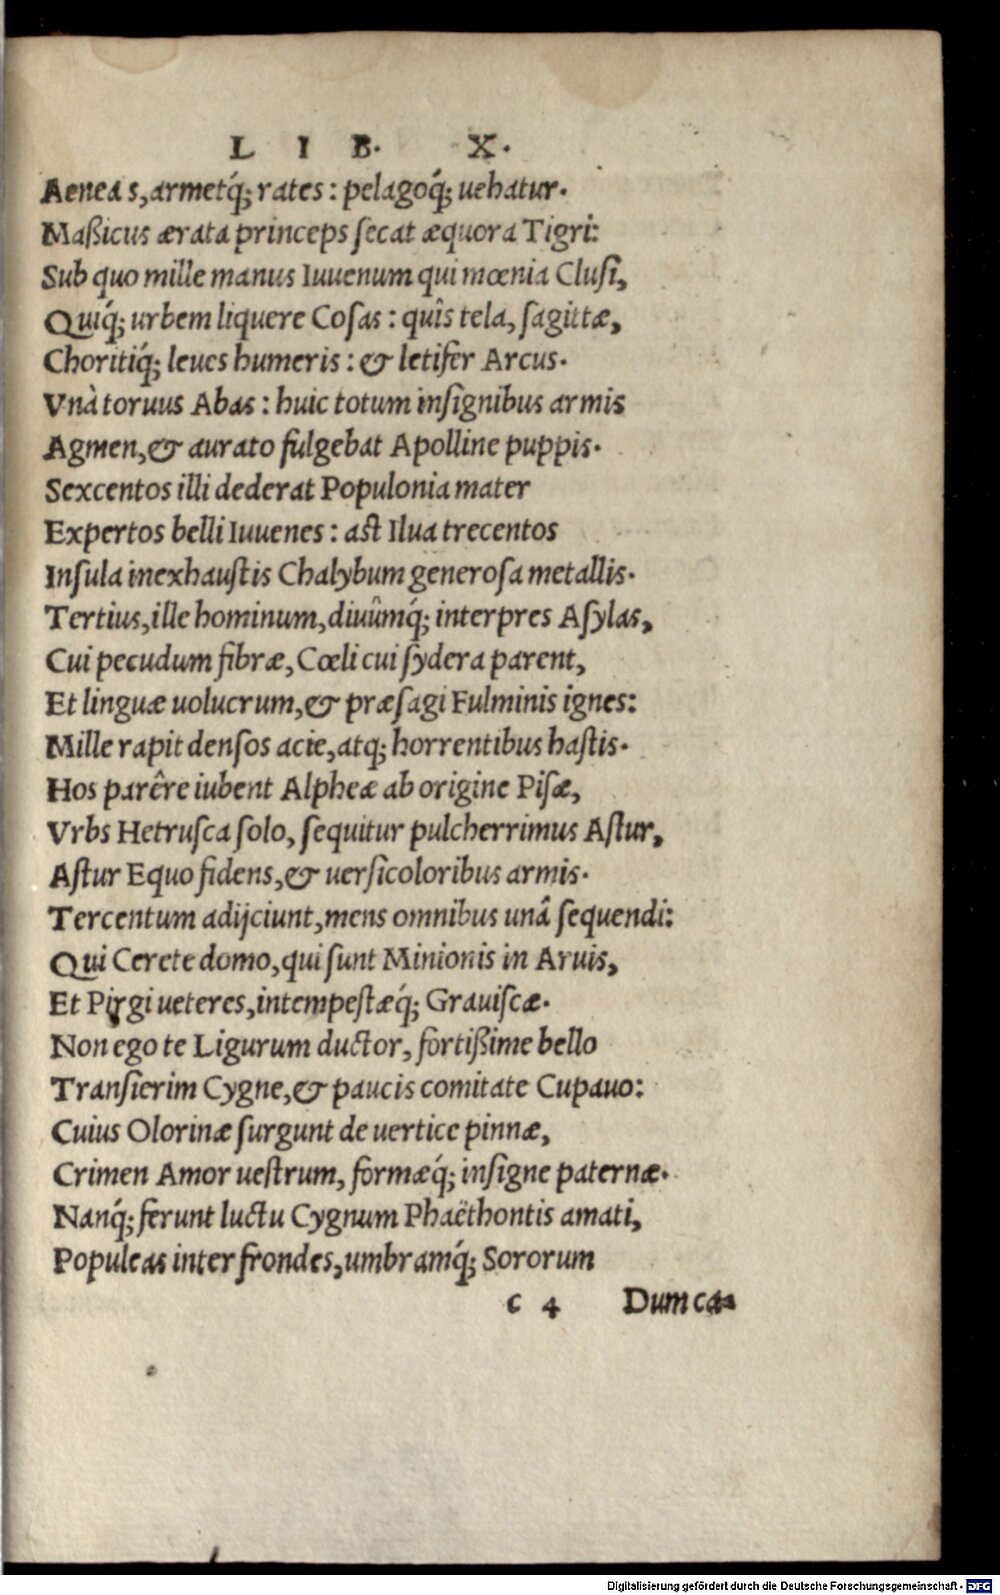 L I B. X.
Aeneas, armetq́; rates: pelagoq́; uehatur.
Maßicus ærata princeps ſecat æquora Tigri:
Sub quo mille manus Iuuenum qui mœnia Cluſi,
Quiq́; urbem liquere Coſas: quîs tela, ſagittæ,
Choritiq́; leues humeris: & letifer Arcus.
Vnà toruus Abas: huic totum inſignibus armis
Agmen, & aurato fulgebat Apolline puppis.
Sexcentos illi dederat Populonia mater
Expertos belli Iuuenes: aſt Ilua trecentos
Inſula inexhauſtis Chalybum generoſa metallis.
Tertius, ille hominum, diuûmq́; interpres Aſylas,
Cui pecudum fibræ, Cœli cui ſydera parent,
Et linguæ uolucrum, & præſagi Fulminis ignes:
Mille rapit denſos acie, atq; horrentibus haſtis.
Hos parêre iubent Alpheæ ab origine Piſæ,
Vrbs Hetruſca ſolo, ſequitur pulcherrimus Aſtur,
Aſtur Equo fidens, & uerſicoloribus armis.
Tercentum adijciunt, mens omnibus unâ ſequendi:
Qui Cerete domo, qui ſunt Minionis in Aruis,
Et Pirgi ueteres, intempeſtæq́; Grauiſcæ.
Non ego te Ligurum ductor, fortißime bello
Tranſierim Cygne, & paucis comitate Cupauo:
Cuius Olorinæ ſurgunt de uertice pinnæ,
Crimen Amor ueſtrum, formæq́; inſigne paternæ.
Nanq́; ferunt luctu Cygnum Phaëthontis amati,
Populeas inter frondes, umbramq́; Sororum
c 4 Dum ca-
Digitalisierung gefördert durch die Deutsche Forschungsgemeinschaft - DFG